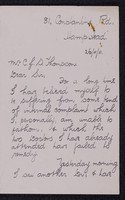 Mr C J S Thompson
Dear Sir,
For a long time
I have believed myself to
be suffering from some kind
of mental complaint which
I, personally, am unable to
fathom, & which the
two Doctors I have already
attended have failed to
remedy.
Yesterday morning
I saw another Dr. & have